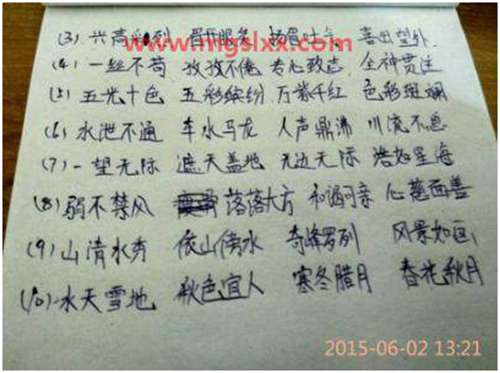 (3) 兴高采烈 眉开眼笑 扬眉吐气 喜出望外
www.mgslxx.com
(4) 一丝不苟 孜孜不倦 专心致志 全神贯注
(5) 五光十色 五彩缤纷 万紫千红 色彩斑斓
(6) 水泄不通 车水马龙 人声鼎沸 川流不息
(7) 一望无际 遮天盖地 无边无际 浩如星海
(8) 弱不禁风 落落大方 和谒可亲 心慈面善
(9) 山清水秀 依山傍水 奇峰罗列 风景如画
(10) 水天雪地 秋色宜人 寒冬腊月 春花秋月
2015-06-02 13:21